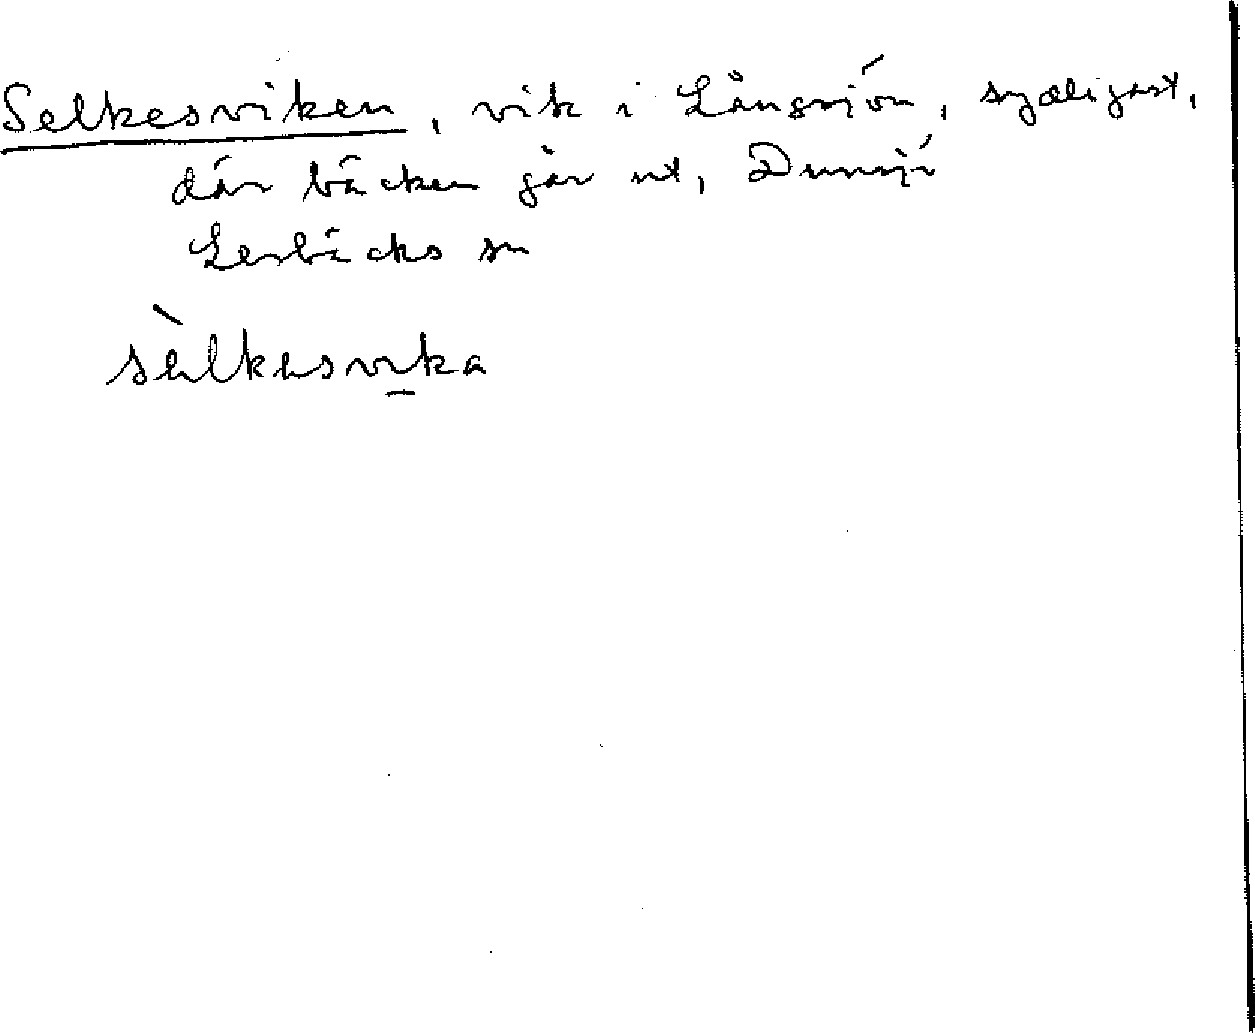 Selkesviken, vik i Långsjön, sydligast,
där bäcken går ut, Dunsjö
Lerbäcks sn
sèlkesvika